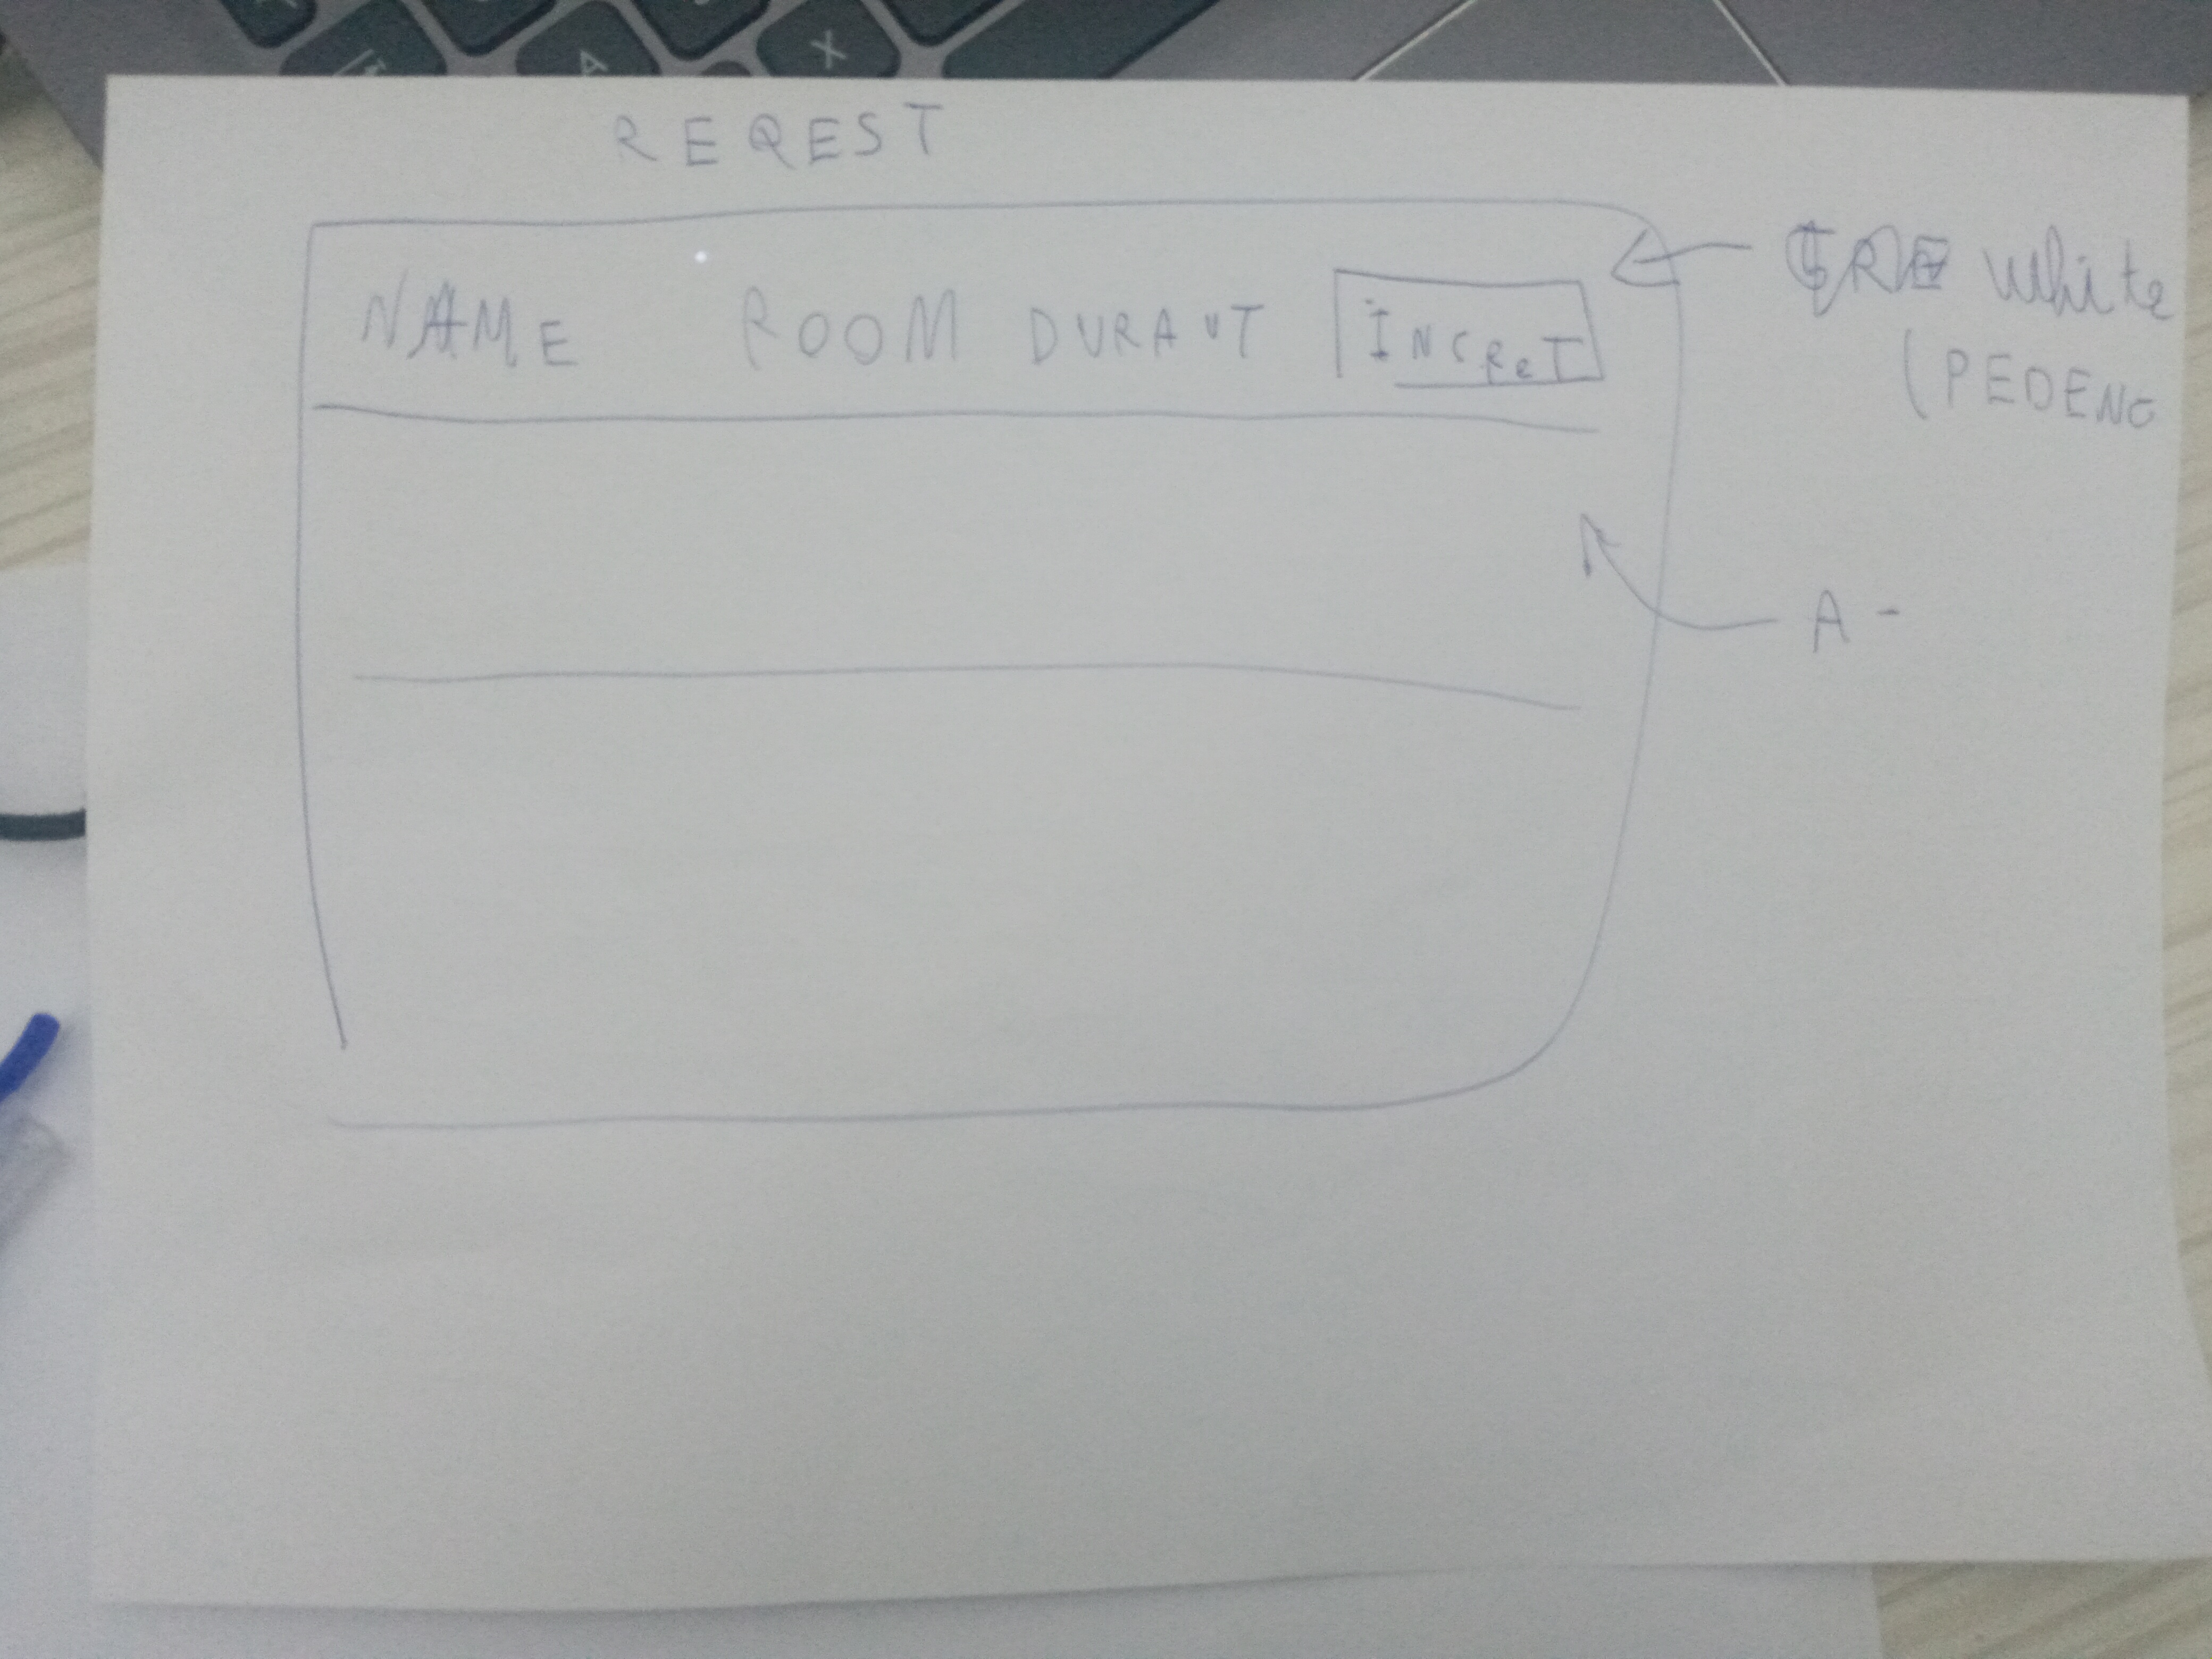 REQEST
NAME ROOM DURANT INCReT
white
(PEDENG
A -